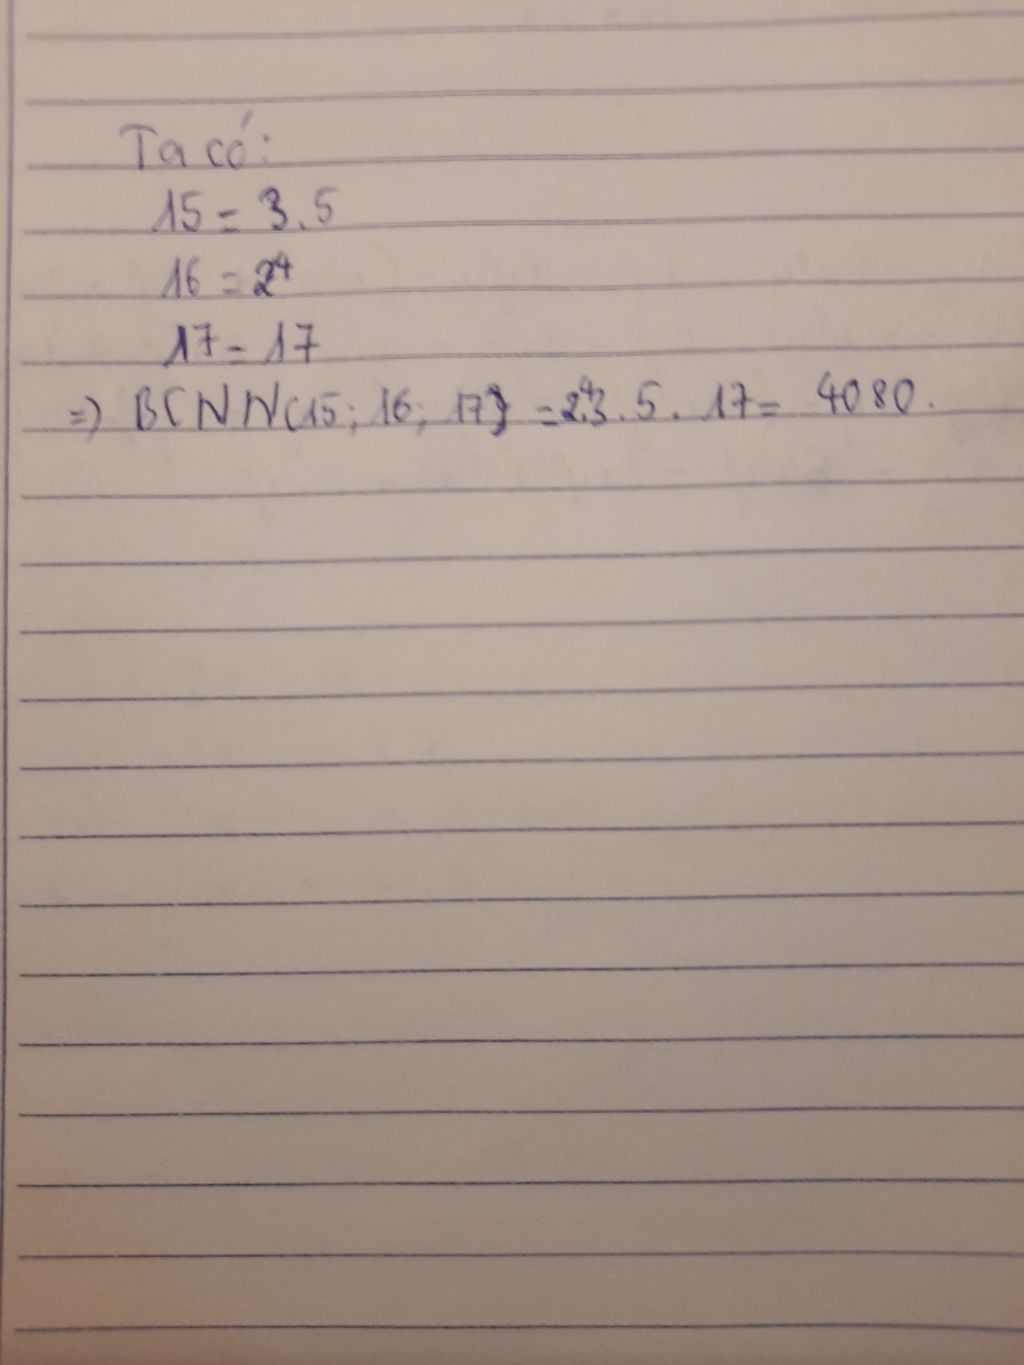 Ta có:
15 = 3.5
16 = 2⁴
17 = 17
=) BCNN(15; 16; 17) = 2⁴.3.5.17 = 4080.